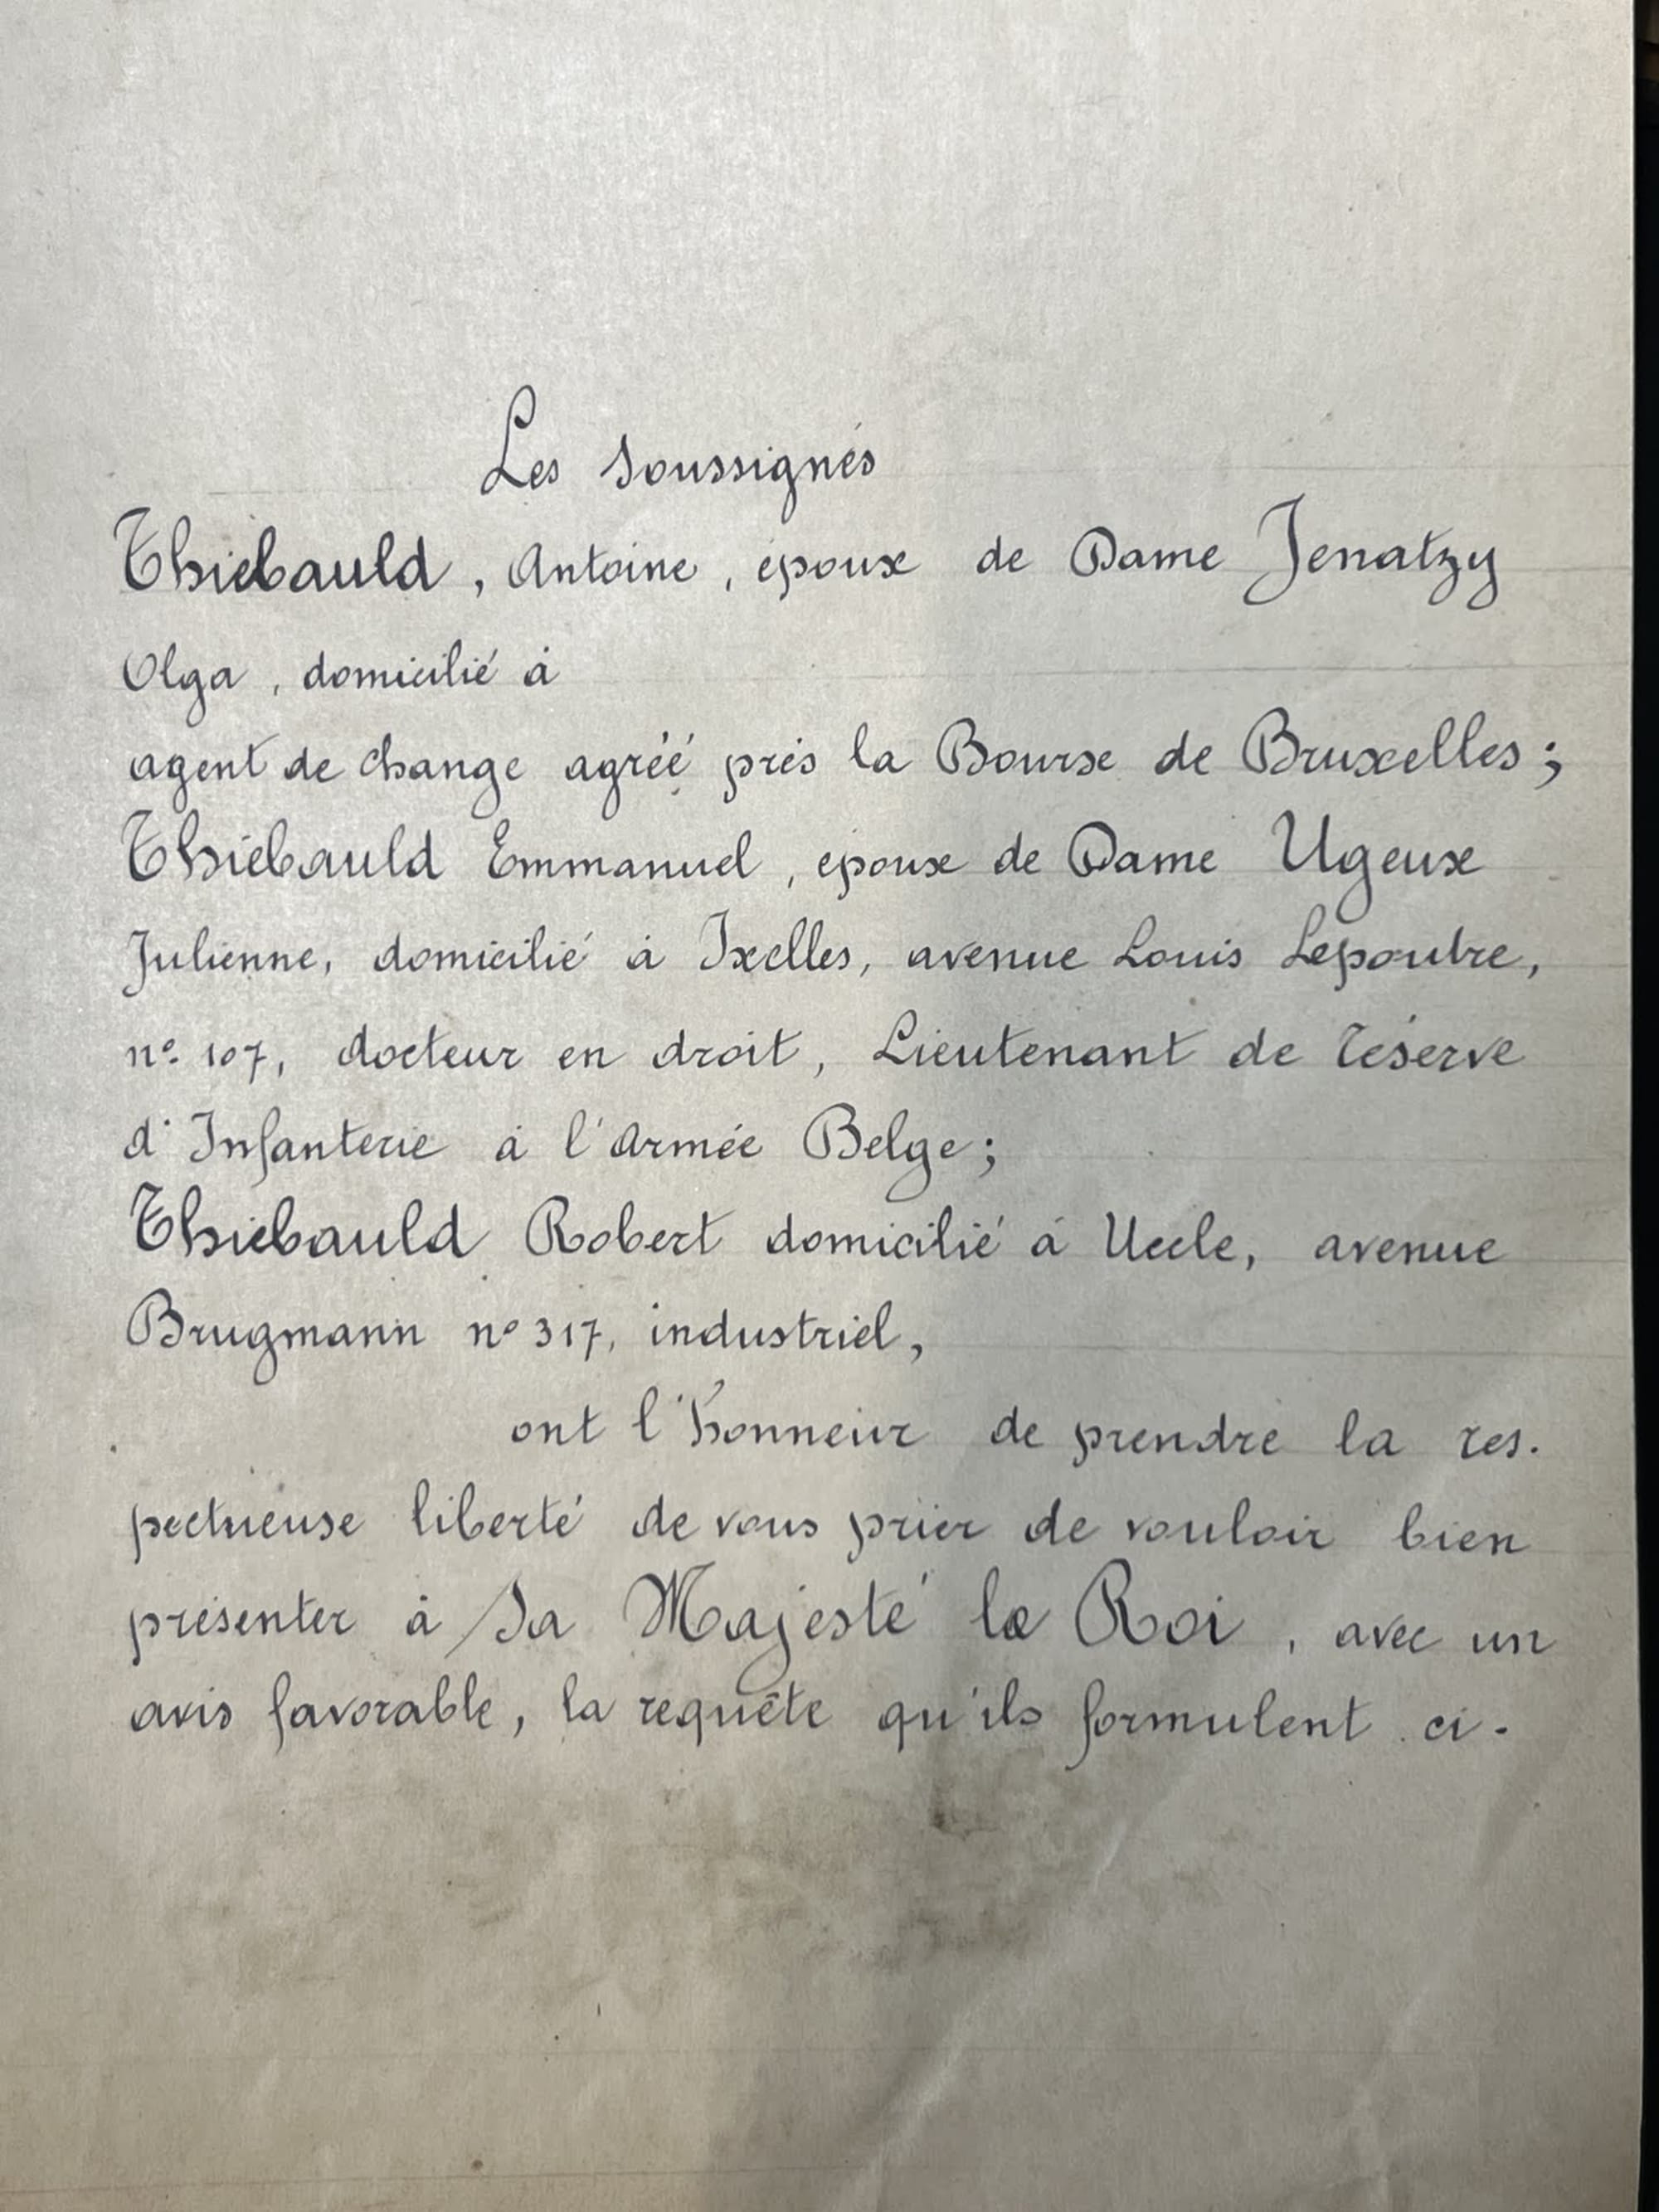 Les soussignés
Thiébauld, Antoine, époux de Dame Jenatzy
Olga, domicilié à
agent de change agréé près la Bourse de Bruxelles;
Thiébauld Emmanuel, époux de Dame Ugeux
Julienne, domicilié à Ixelles, avenue Louis Lepoutre,
n° 107, docteur en droit, Lieutenant de réserve
d'Infanterie à l'Armée Belge;
Thiébauld Robert domicilié à Uccle, avenue
Brugmann n° 317, industriel,
ont l'honneur de prendre la res-
pectueuse liberté de vous prier de vouloir bien
présenter à Sa Majesté le Roi, avec un
avis favorable, la requête qu'ils formulent ci-